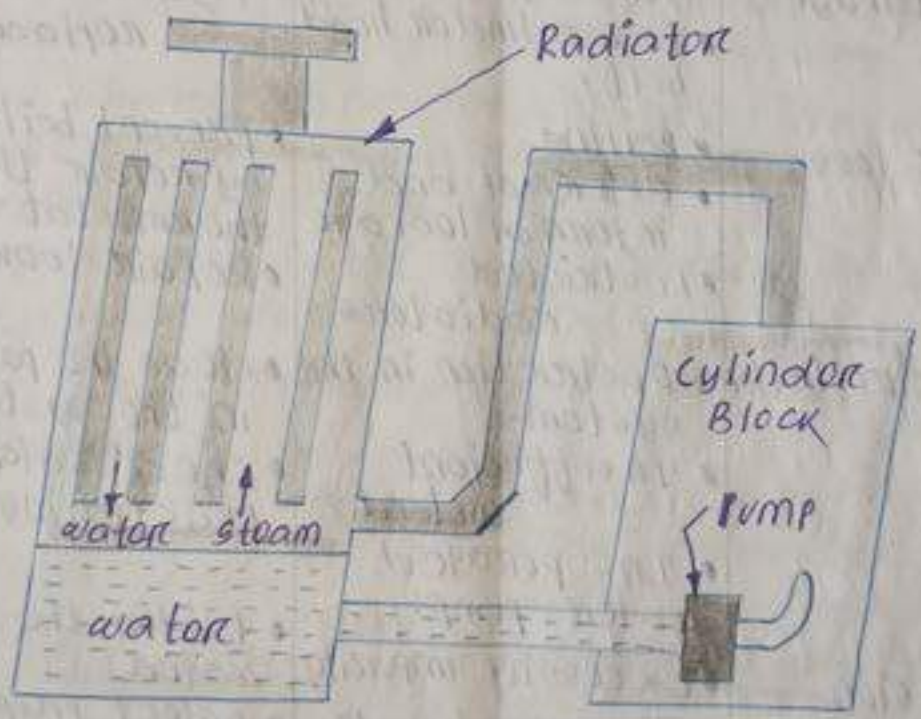 Radiator
Cylinder
Block
Pump
water steam
water